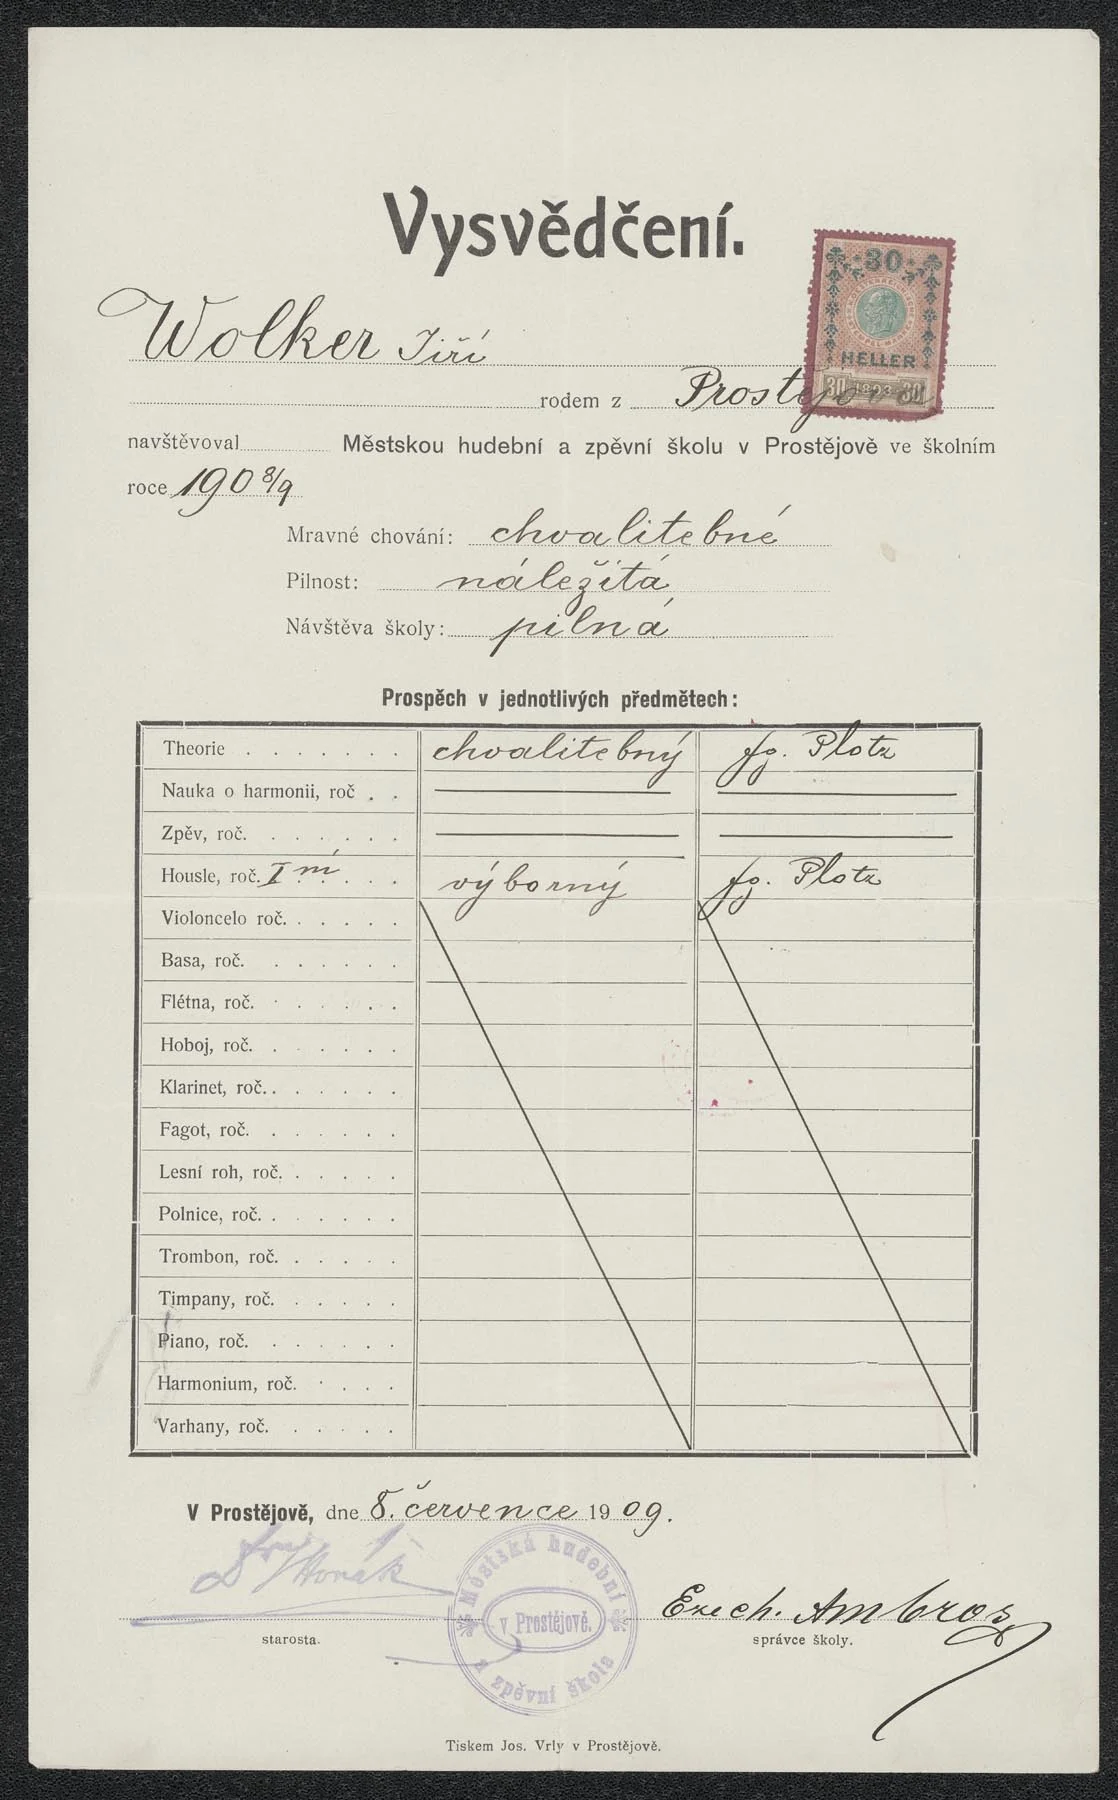 Vysvědčení.
30
HELLER
30 1898 30
Wolker Jiří
rodem z Prostějova
navštěvoval Městskou hudební a zpěvní školu v Prostějově ve školním
roce 1908/9
Mravné chování: chvalitebné
Pilnost: náležitá
Návštěva školy: pilná
Prospěch v jednotlivých předmětech:
Theorie . . . . . . . chvalitebný Ig. Plotz
Nauka o harmonii, roč . .
Zpěv, roč. . . . . . .
Housle, roč. I ní . . . výborný Ig. Plotz
Violoncelo roč. . . . . .
Basa, roč. . . . . . .
Flétna, roč. . . . . . .
Hoboj, roč. . . . . . .
Klarinet, roč. . . . . . .
Fagot, roč. . . . . . .
Lesní roh, roč. . . . . .
Polnice, roč. . . . . . .
Trombon, roč. . . . . .
Timpany, roč. . . . . .
Piano, roč. . . . . . .
Harmonium, roč. . . . .
Varhany, roč. . . . . . .
V Prostějově, dne 8. července 1909.
Horák
Městská hudební
v Prostějově.
a zpěvní škola
Ezech. Ambros
starosta. správce školy.
Tiskem Jos. Vrly v Prostějově.